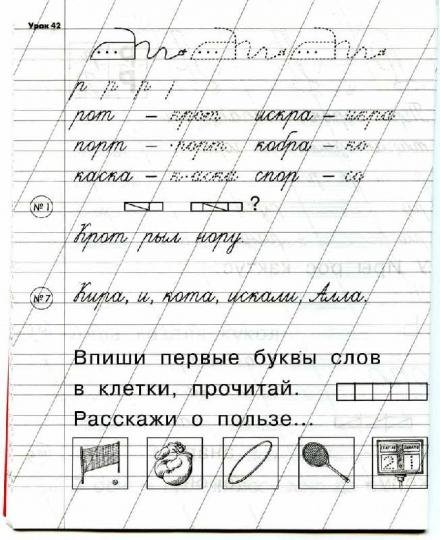 Урок 42
р р р
рот – крот искра – икра
порт – порт кобра – ко
каска – каска спор – со
№ 1 ?
Крот рыл нору.
№ 7 Кира, и, кота, искали, Алла.
Впиши первые буквы слов
в клетки, прочитай.
Расскажи о пользе...